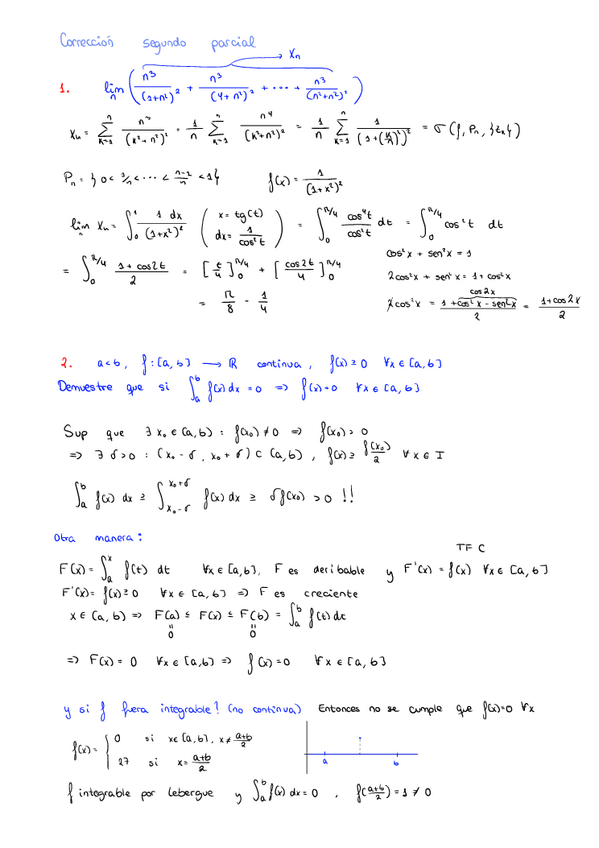 Corrección segundo parcial
1. lim_n ( n³/(1+n²)² + n³/(4+n²)² + ··· + n³/(n²+n²)² ) → Xn
Xn = Σ_{k=1}^{n} n³/(k²+n²)² = 1/n Σ_{k=1}^{n} n⁴/(k²+n²)² = 1/n Σ_{k=1}^{n} 1/(1+(k/n)²)² = σ(f, Pn, {tk})
Pn = { 0 < 1/n < ··· < n-1/n < 1 } f(x) = 1/(1+x²)²
lim Xn = ∫₀¹ 1 dx/(1+x²)² ( x = tg(t) dx = 1/cos²t ) = ∫₀^{π/4} cos⁴t/cos²t dt = ∫₀^{π/4} cos²t dt
cos²x + sen²x = 1
= ∫₀^{π/4} 1+cos2t/2 = [t/4]₀^{π/4} + [cos2t/4]₀^{π/4}
2cos²x + sen²x = 1 + cos²x
= π/8 - 1/4
2cos²x = 1 + cos²x - sen²x/2 = 1+cos2x/2
cos2x
2. a<b, f: [a,b] → R continua, f(x) ≥ 0 ∀x ∈ [a,b]
Demuestre que si ∫ₐᵇ f(x) dx = 0 => f(x)=0 ∀x ∈ [a,b]
Sup que ∃ x₀ ∈ (a,b) : f(x₀) ≠ 0 => f(x₀) > 0
=> ∃ δ>0 : (x₀-δ, x₀+δ) ⊂ (a,b), f(x) ≥ f(x₀)/2 ∀x ∈ I
∫ₐᵇ f(x) dx ≥ ∫_{x₀-δ}^{x₀+δ} f(x) dx ≥ δf(x₀) > 0 !!
Otra manera:
TFC
F(x) = ∫ₐˣ f(t) dt ∀x ∈ [a,b], F es deribable y F'(x) = f(x) ∀x ∈ [a,b]
F'(x) = f(x) ≥ 0 ∀x ∈ [a,b] => F es creciente
x ∈ (a,b) => F(a) ≤ F(x) ≤ F(b) = ∫ₐᵇ f(t) dt
= 0 = 0
=> F(x) = 0 ∀x ∈ [a,b] => f(x) = 0 ∀x ∈ [a,b]
y si f fuera integrable? (no continua) Entonces no se cumple que f(x)=0 ∀x
f(x) = { 0 si x ∈ [a,b], x ≠ a+b/2
27 si x = a+b/2
a b
f integrable por Lebergue y ∫ₐᵇ f(x) dx = 0, f(a+b/2) = 1 ≠ 0